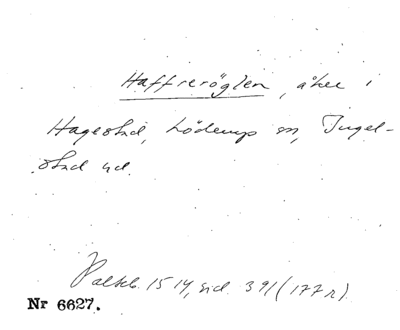 Haffreröglen, åker i
Hagestad, Löderups sn, Ingel-
stad hd.
Palteb. 1514, sid. 391 (177 r).
Nr 6627.